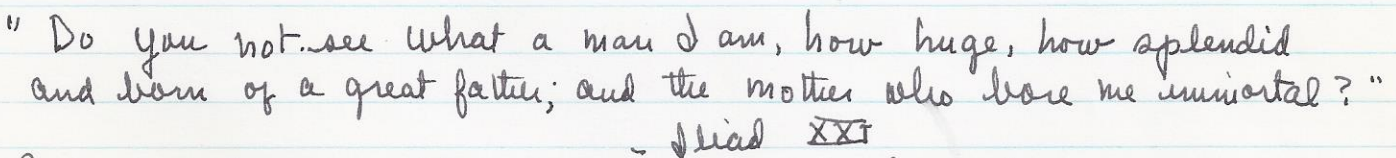 " Do you not see what a man I am, how huge, how splendid
and born of a great father; and the mother who bore me immortal? "
- Iliad XXI